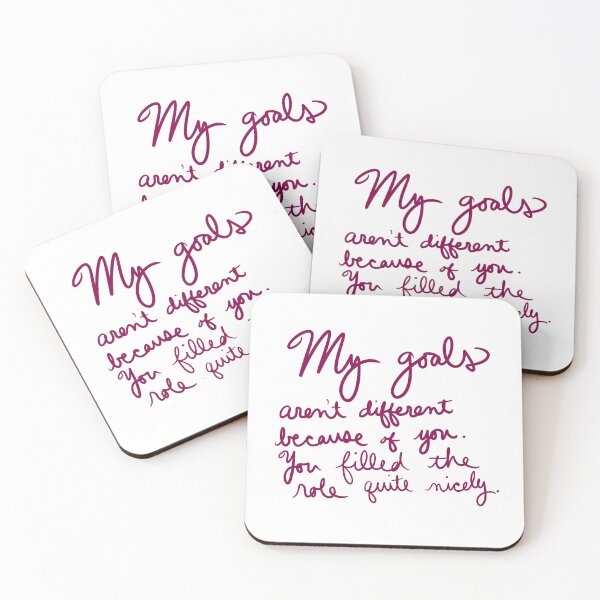 My goals
aren't different
you.
the
My goals
aren't different
because of you.
You filled the
nicely.
My goals
aren't different
because of you.
You filled
role quite
My goals
aren't different
because of you.
You filled the
role quite nicely.